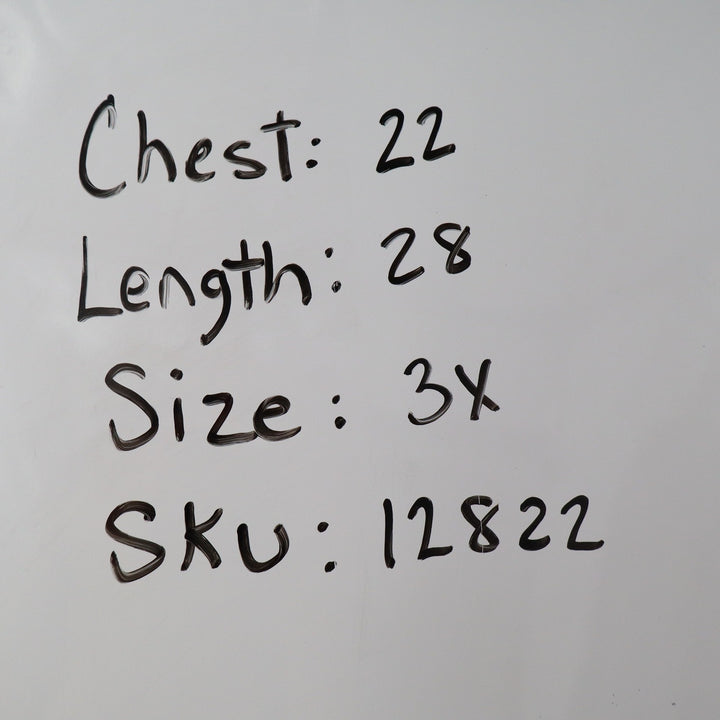 Chest: 22
Length: 28
Size: 3X
SKU: 12822